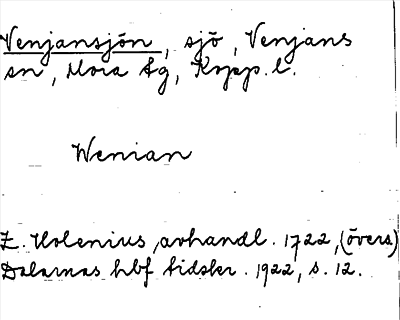 Venjansjön, sjö, Venjans
sn, Mora tg, Kopp. l.
Wenian
E. Holenius, avhandl. 1722, (övers)
Dalarnas hbf tidskr. 1922, s. 12.